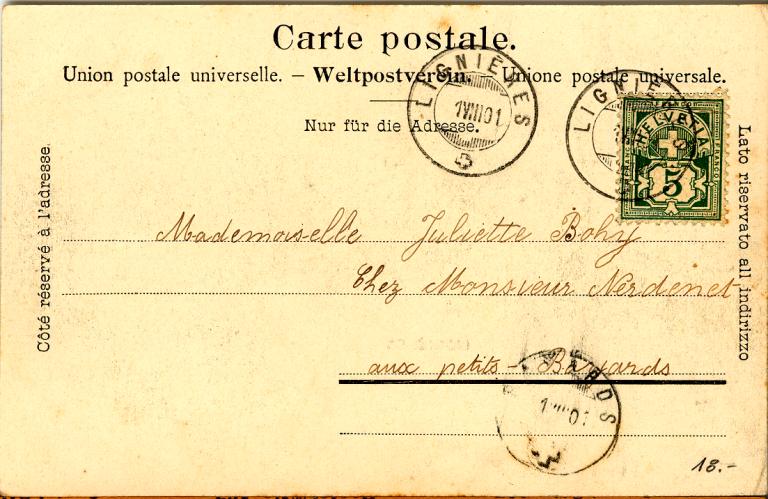 Carte postale.
Union postale universelle. – Weltpostverein. Unione postale universale.
Nur für die Adresse.
LIGNIÈRES
1 VIII 01
LIGNIÈRES
HELVETIA
FRANCO
5
Côté réservé à l'adresse.
Lato riservato all indirizzo
Mademoiselle Juliette Bohy
Chez Monsieur Nerdenet
aux petits-Bayards
BAYARDS
01
18.-